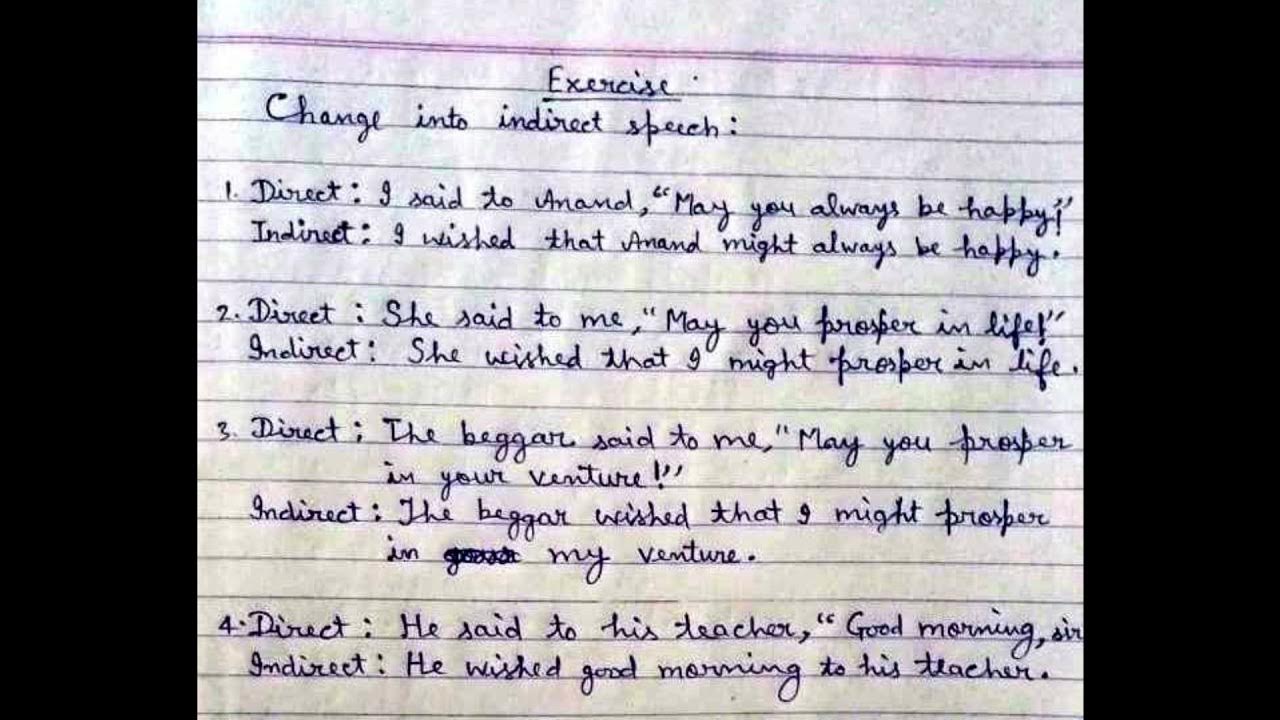 Exercise
Change into indirect speech:
1. Direct: I said to Anand, "May you always be happy!"
Indirect: I wished that Anand might always be happy.
2. Direct: She said to me, "May you prosper in life!"
Indirect: She wished that I might prosper in life.
3. Direct: The beggar said to me, "May you prosper
in your venture!"
Indirect: The beggar wished that I might prosper
in my venture.
4. Direct: He said to his teacher, "Good morning, sir
Indirect: He wished good morning to his teacher.